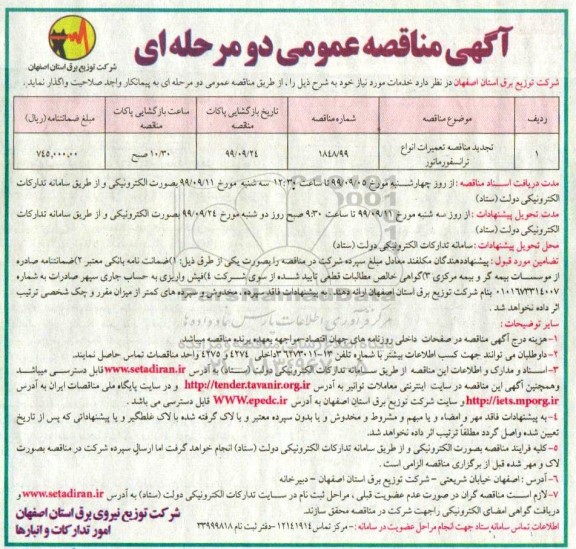 آگهی مناقصه عمومی دو مرحله ای
شرکت توزیع برق استان اصفهان
شرکت توزیع برق استان اصفهان در نظر دارد خدمات مورد نیاز خود به شرح ذیل را، از طریق مناقصه عمومی دو مرحله ای به پیمانکار واجد صلاحیت واگذار نماید.
ردیف موضوع مناقصه شماره مناقصه تاریخ بازگشایی پاکات مناقصه ساعت بازگشایی پاکات مناقصه مبلغ ضمانتنامه (ریال)
۱ تجدید مناقصه تعمیرات انواع ترانسفورماتور ۱۸۴۸/۹۹ ۹۹/۰۹/۲۴ ۱۰/۳۰ صبح ۷۴۵,۰۰۰,۰۰۰
مدت دریافت اسناد مناقصه : از روز چهارشنبه مورخ ۹۹/۰۹/۰۵ تا ساعت ۱۲:۳۰ سه شنبه مورخ ۹۹/۰۹/۱۱ بصورت الکترونیکی و از طریق سامانه تدارکات
الکترونیکی دولت (ستاد)
مدت تحویل پیشنهادات : از روز سه شنبه مورخ ۹۹/۰۹/۱۱ تا ساعت ۹:۳۰ صبح روز دو شنبه مورخ ۹۹/۰۹/۲۴ بصورت الکترونیکی و از طریق سامانه تدارکات
الکترونیکی دولت (ستاد)
محل تحویل پیشنهادات : سامانه تدارکات الکترونیکی دولت (ستاد)
تضامین مورد قبول : پیشنهاددهندگان مکلفند معادل مبلغ سپرده شرکت در مناقصه را بصورت یکی از طرق ذیل: ۱)ضمانت نامه بانکی معتبر ۲)ضمانتنامه صادره
از موسسات بیمه گر و بیمه مرکزی ۳)گواهی خالص مطالبات قطعی تایید شده از سوی شرکت ۴)فیش واریزی به حساب جاری سپهر صادرات به شماره
۰۱۰۱۶۷۳۳۱۴۰۰۷ بنام شرکت توزیع برق استان اصفهان ارائه دهند. به پیشنهادات فاقد سپرده، مخدوش، سپرده های کمتر از میزان مقرر و چک شخصی ترتیب
اثر داده نخواهد شد.
سایر توضیحات :
۱-هزینه درج آگهی مناقصه در صفحات داخلی روزنامه های جهان اقتصاد مواجهه بعهده برنده مناقصه میباشد.
۲-داوطلبان می توانند جهت کسب اطلاعات بیشتر با شماره تلفن ۱۳-۳۶۲۷۳۰۱۱ داخلی ۴۲۷۴ و ۴۲۷۵ واحد مناقصات تماس حاصل نمایند.
۳-اسناد و مدارک و اطلاعات این مناقصه از طریق سامانه تدارکات الکترونیکی دولت (ستاد) به آدرس www.setadiran.ir قابل دسترسی میباشد
وهمچنین آگهی این مناقصه در سایت اینترنتی معاملات توانیر به آدرس http://tender.tavanir.org.ir و در سایت پایگاه ملی مناقصات ایران به آدرس
http://iets.mporg.ir و سایت شرکت توزیع برق استان اصفهان به آدرس WWW.epedc.ir قابل دسترسی می باشد.
۴-به پیشنهادات فاقد مهر و امضاء و یا مبهم و مشروط و مخدوش و یا بدون سپرده معتبر و یا لاک گرفته شده با لاک غلطگیر و یا پیشنهاداتی که پس از تاریخ
تعیین شده واصل گردد مطلقا ترتیب اثر داده نخواهد شد.
۵-کلیه فرایند مناقصه بصورت الکترونیکی و از طریق سامانه تدارکات الکترونیکی دولت (ستاد) انجام خواهد گرفت اما ارسال سپرده شرکت در مناقصه بصورت
لاک و مهر شده قبل از برگزاری مناقصه الزامی است.
۶-آدرس : اصفهان خیابان شریعتی - شرکت توزیع برق استان اصفهان - دبیرخانه
۷-لازم است مناقصه گران در صورت عدم عضویت قبلی، مراحل ثبت نام در سایت تدارکات الکترونیکی دولت (ستاد) به آدرس www.setadiran.ir و
دریافت گواهی امضای الکترونیکی راجهت شرکت در مناقصه محقق سازند.
اطلاعات تماس سامانه ستاد جهت انجام مراحل عضویت در سامانه : - مرکز تماس ۱۲۱۴۱۹۱۴ -دفتر ثبت نام ۳۳۹۹۹۸۱۸
شرکت توزیع نیروی برق استان اصفهان
امور تدارکات و انبارها